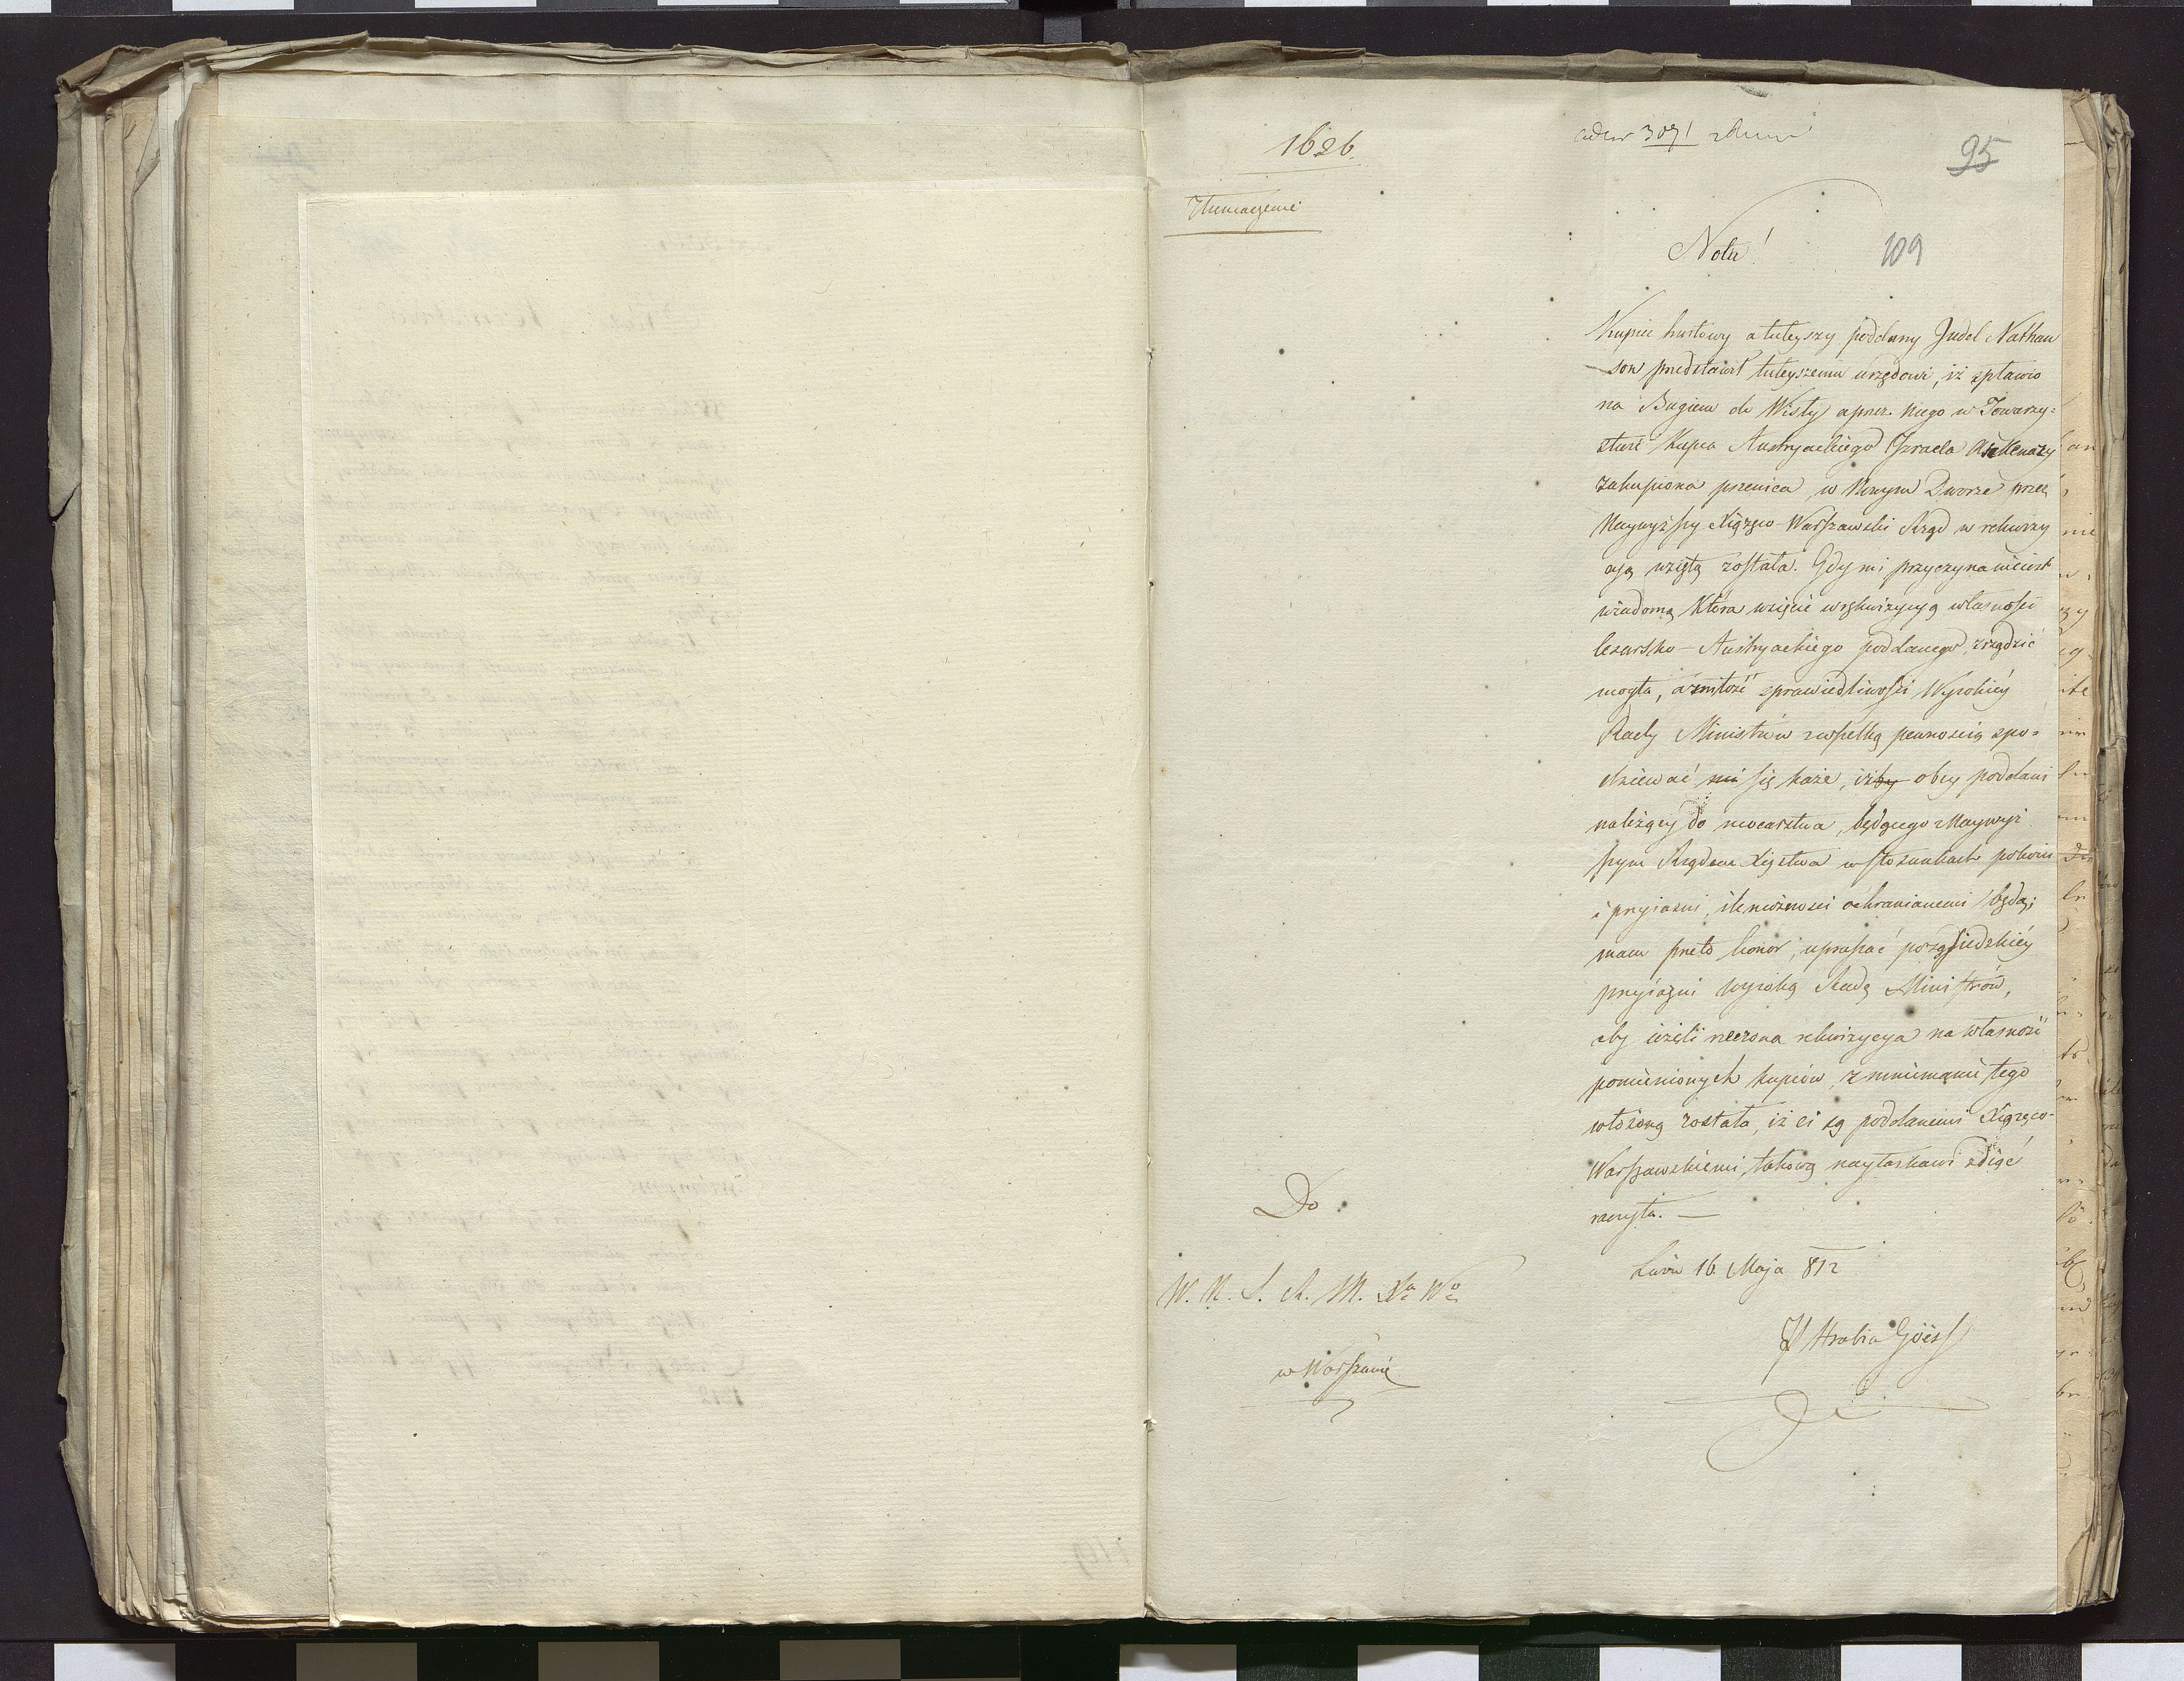 1626.
Tłumaczenie
ad nr 3071
95
109
Nota!
Kupiec hurtowy a tuteyszy poddany Judel Nathan
son przedstawił tuteyszemu urzędowi, iż spławio
na Bugiem do Wisły a przez niego w Towarzy=
stwie Kupca Austryackiego Izraela Aszkenazy
zakupiona pszenica, w Nowym Dworze przez
Naywyższy Xiązęco-Warszawski Rząd w rekwizy
cyą wziętą została. Gdy mi przyczyna nie iest
wiadomą, która wzięcie w rekwizycyą własności
Cesarsko-Austryackiego poddanego, zrządzić
mogła, a miłość sprawiedliwości Wysokiéy
Rady Ministrów z wszelką pewnością spo=
dziewać mi się każe, iżby obcy poddani
należący do mocarstwa, będącego z Naywyż
szym Rządem Xięstwa w stosunkach pokoiu
i przyiaźni, ile możności ochranianemi będą;
mam przeto honor, upraszać po sąsiedzkiéy
przyiaźni wysoką Radę Ministrów,
aby ieżeli rzeczona rekwizycya na własność
pomienionych kupców, z mniemania tego
włożoną została, iż ci są poddanemi Xiązęco-
Warszawskiemi, takową nayłaskawi zdiąć
raczyła. —
Lwów 16. Maja 812
Hrabia Göess
Do
W. N. S. R. M. Xa Wo
w Warszawie